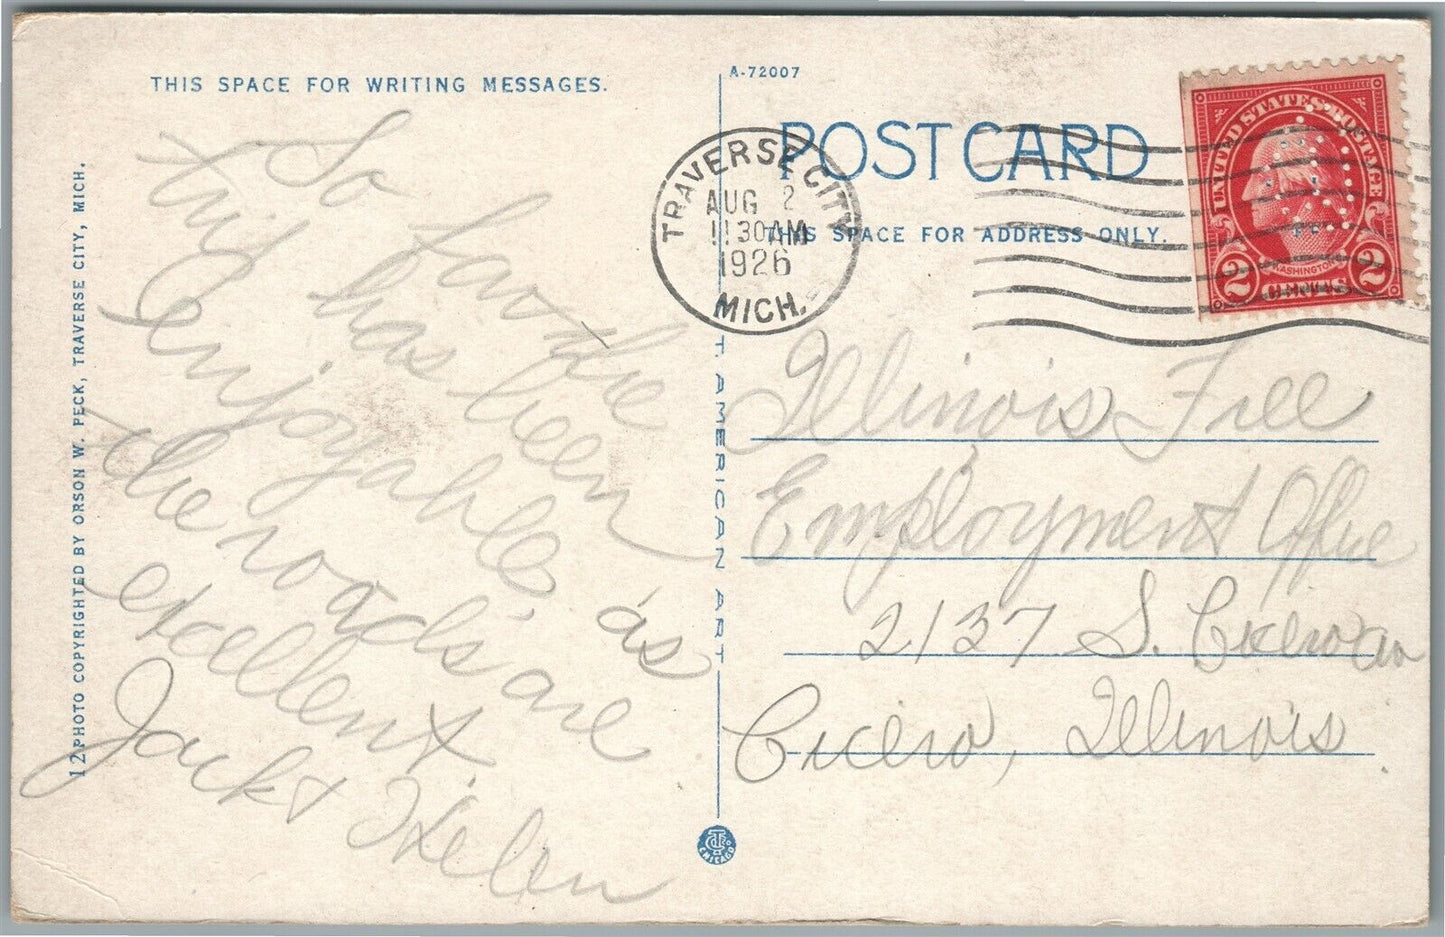 THIS SPACE FOR WRITING MESSAGES.
So far the
trip has been
enjoyable, as
the roads are
excellent.
Jack & Helen
12 PHOTO COPYRIGHTED BY ORSON W. PECK, TRAVERSE CITY, MICH.
A-72007
POST CARD
THIS SPACE FOR ADDRESS ONLY.
TRAVERSE CITY
AUG 2
11 30 AM
1926
MICH.
UNITED STATES POSTAGE
WASHINGTON
2 CENTS 2
Illinois Free
Employment Office
2137 S. Cicero av
Cicero, Illinois
T. AMERICAN ART
CHICAGO